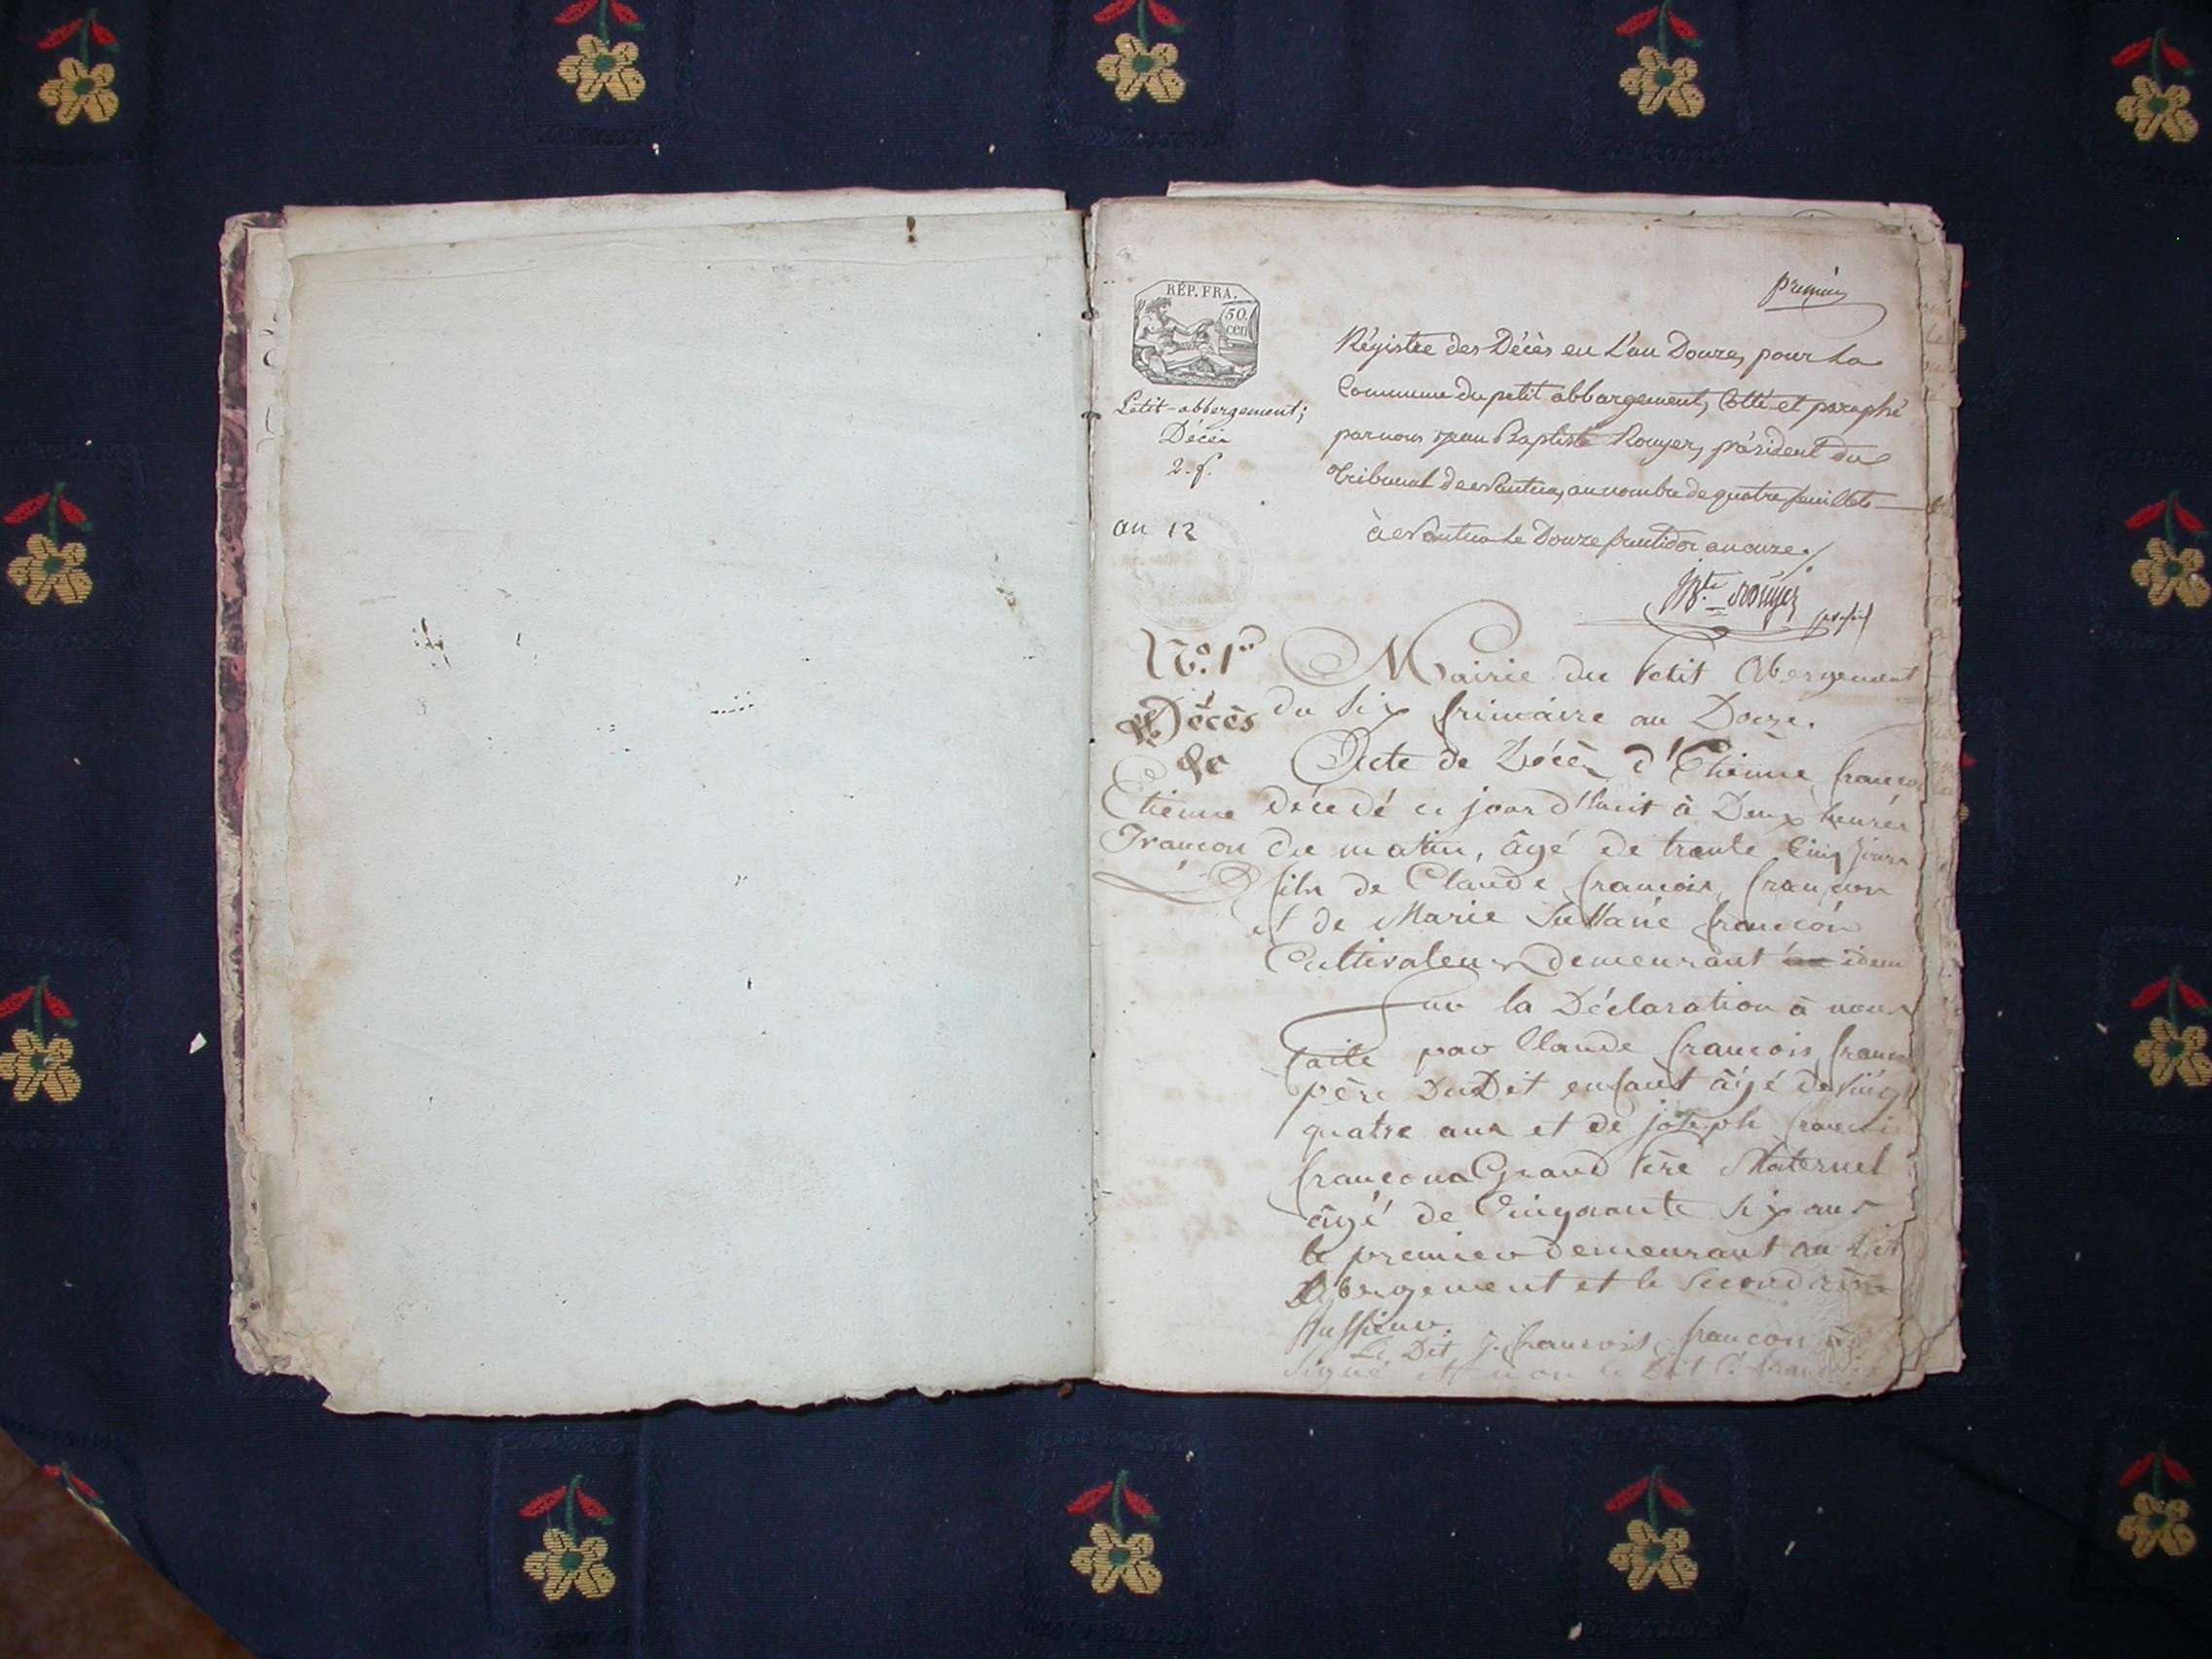 premier
RÉP. FRA.
50.
cen
Régistre des Décès en L'an Douze, pour La
Commune du petit abbergement, Cotté et paraphé
par nous jean Baptiste Rouyer, président du
Tribunal de Nantua, au nombre de quatre feuillets
à Nantua Le Douze fructidor an onze.
Jbte Rouyer
Petit-abbergement;
Décès
2. f.
an 12
N.o 1er
Décès
de
Etienne
Françon
Mairie du Petit Abergement
du Six frimaire an Douze.
Acte de Décès d'Etienne françon
décédé ce jour d'huit à Deux heures
du matin, âgé de trente Cinq jours
fils de Claude françois françon
et de Marie françon
Cultivateur demeurant idem
Sur la Déclaration à nous
faite par Claude françois françon
père DuDit enfant âgé de vingt
quatre ans et de joseph françois
françon Grand Père Maternel
âgé de Cinquante Six ans
le premier demeurant au Dit
Abergement et le Second à
Le Dit J. françois françon à
Signé et non le Dit C. françois